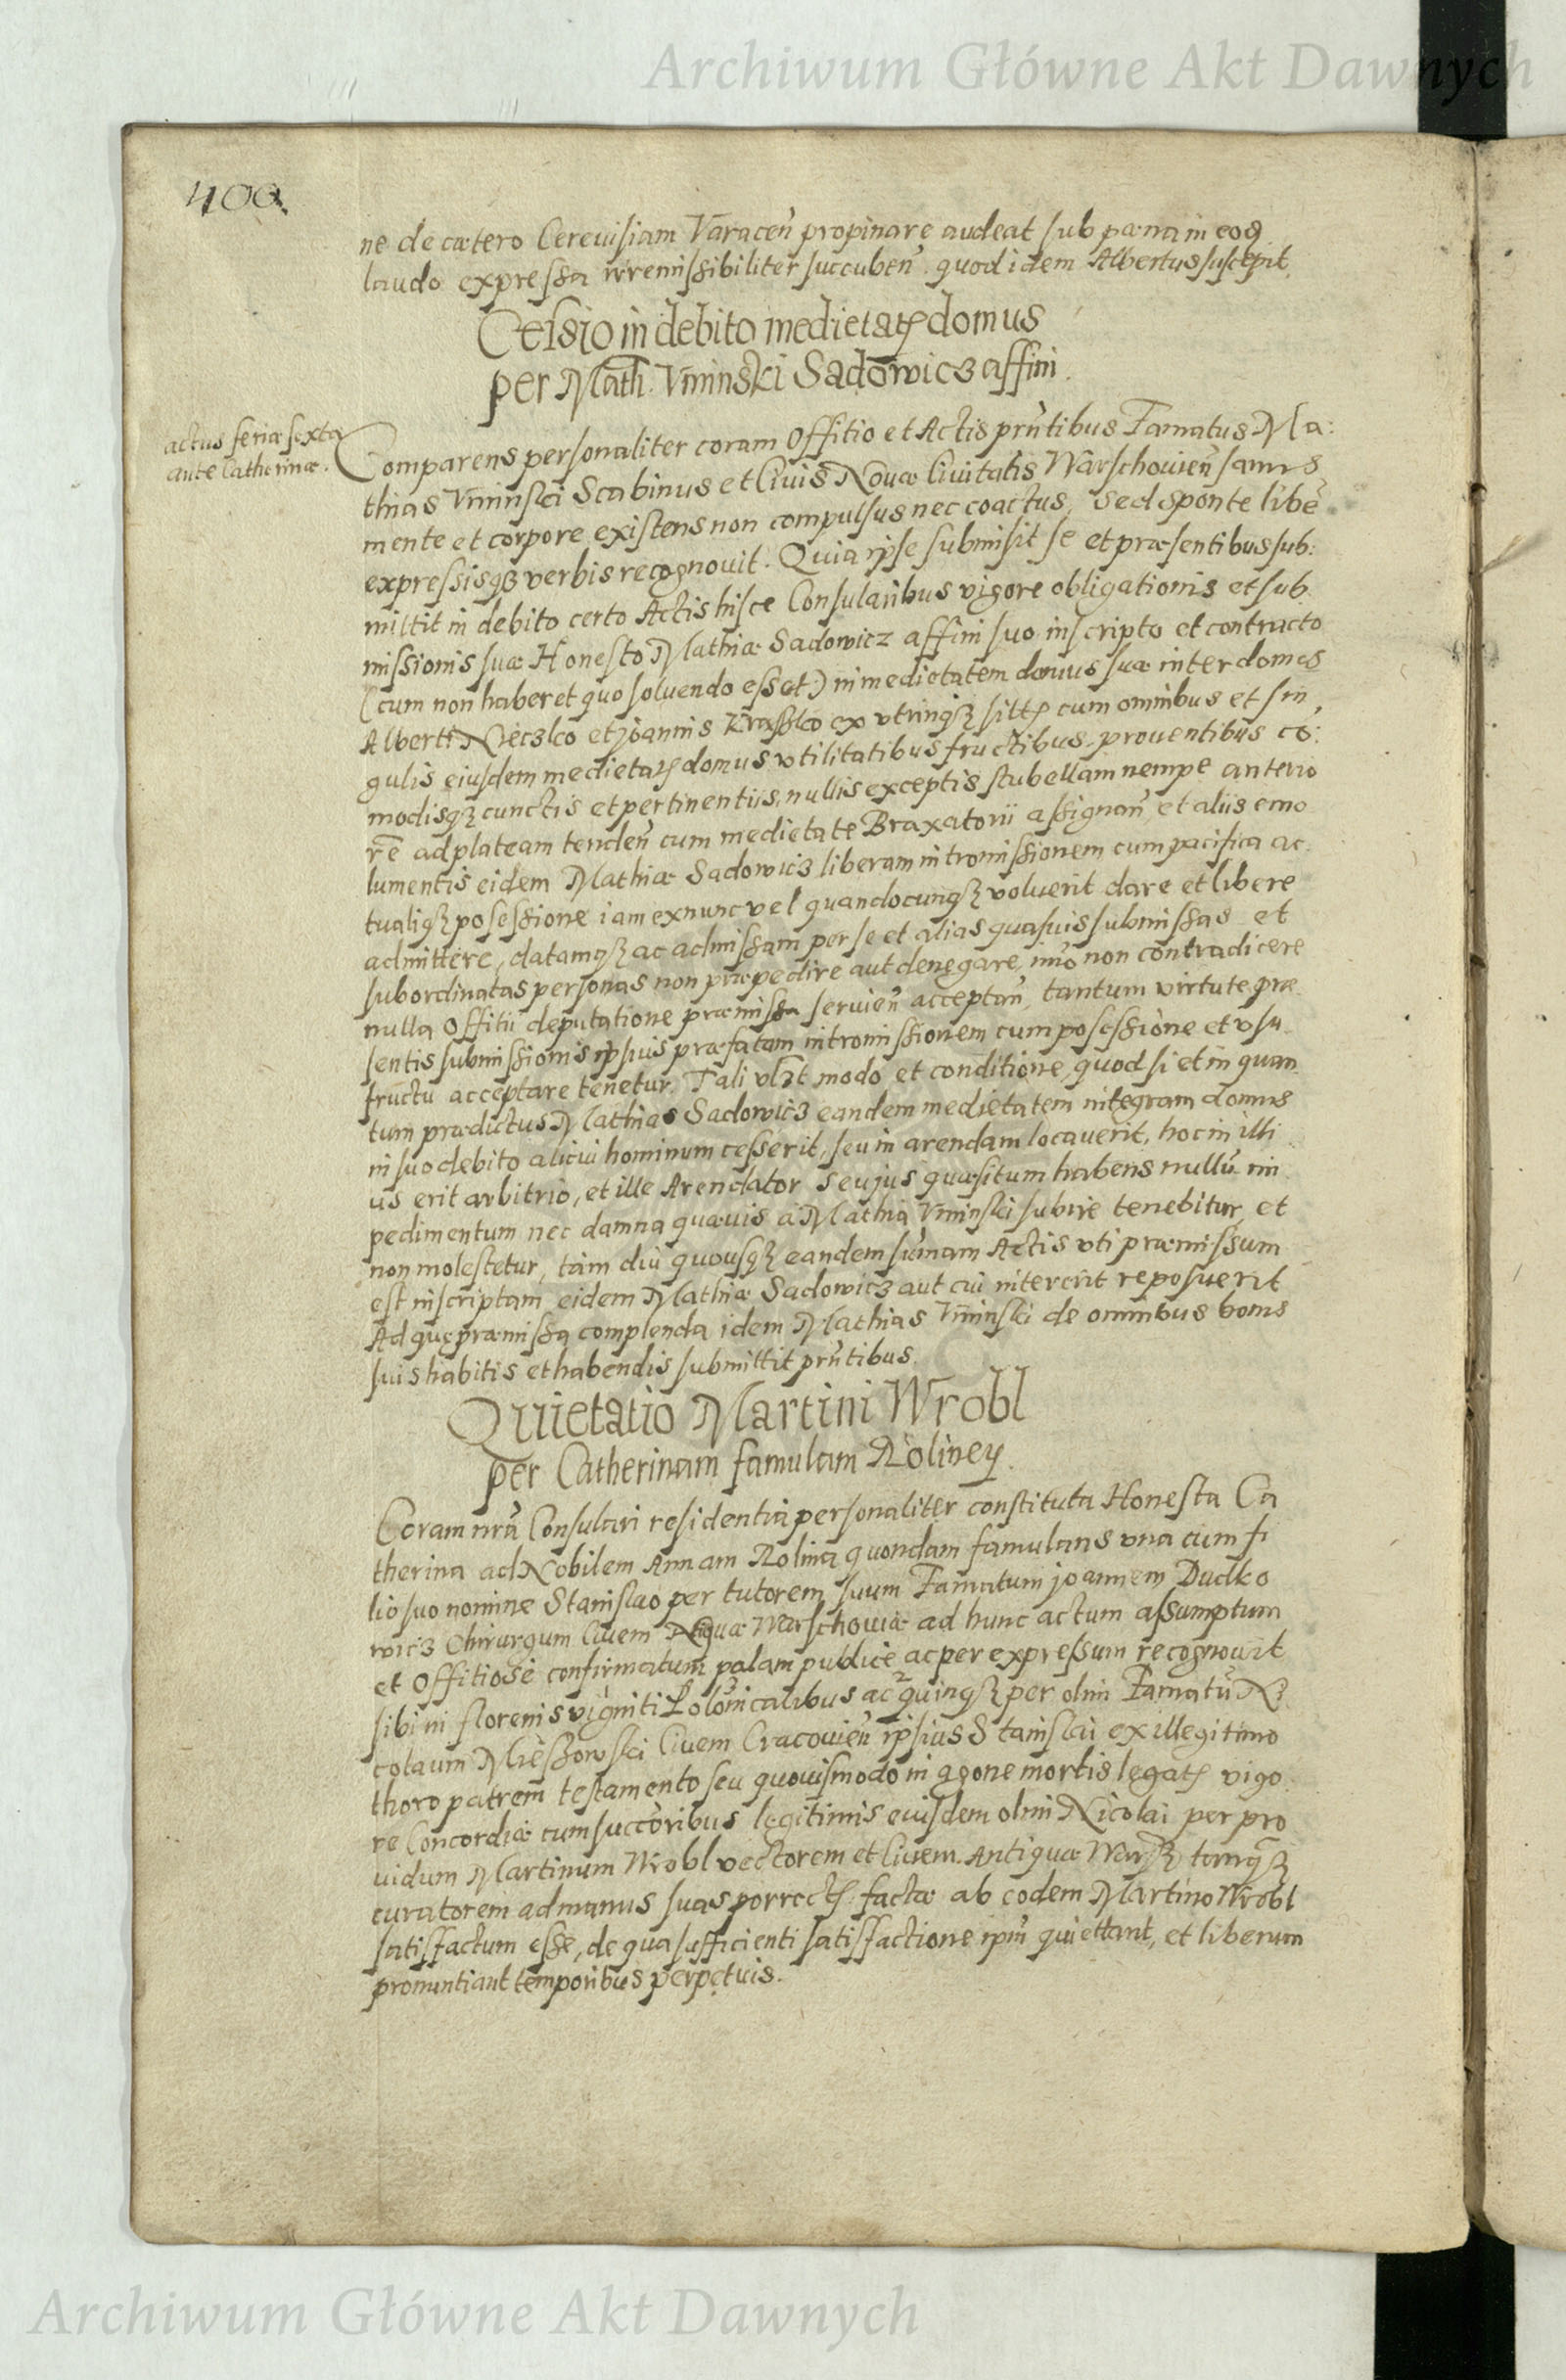 Archiwum Główne Akt Dawnych
400
ne de cætero Cereuisiam Varacen̄ propinare audeat sub pœna in eod̄
laudo expressa irremissibiliter succuben̄ quod idem Albertus suscepit
Cessio in debito medietatꝭ domus
per Math. Vminski Sadowicz affini.
actus feriæ sexta
ante Catherinæ.
Comparens personaliter coram Offitio et Actis prn̄tibus Famatus Ma:
thias Vminski Scabinus et Ciuis Nouæ Ciuitatis Warschouien̄ sanus
mente et corpore existens non compulsus nec coactus, sed sponte libē
expressisqꝫ verbis recognouit. Quia ipse submisit se et præsentibus sub:
mittit in debito certo Actis hisce Consularibus vigore obligationis et sub
missionis suæ Honesto Mathiæ Sadowicz affini suo inscripto et contracto
(cum non haberet quo soluendo esset) in medietatem domus suæ inter domos
Alberti et Joannis ex vtrinqꝫ sittꝭ cum omnibus et sin,
gulis eiusdem medietatꝭ domus vtilitatibus fructibus, prouentibus cō:
modisqꝫ cunctis et pertinentiis, nullis exceptis stubellam nempe anterio
rē ad plateam tenden̄ cum medietate Braxatorii assignan̄ et aliis emo
lumentis eidem Mathiæ Sadowicz liberam intromissionem cum pacifica ac
tualiqꝫ possessione iam exnunc vel quandocunqꝫ voluerit dare et libere
admittere, datamqꝫ ac admissam per se et alias quasuis submissas et
subordinatas personas non præpedire aut denegare, imò non contradicere
nulla Offitii deputatione præmissa seruien̄ acceptan̄, tantum virtute præ
sentis submissionis ipsius præfatam intromissionem cum possessione et vsu
fructu acceptare tenetur. Tali modo et conditione, quod si et in quan
tum prædictus Mathias Sadowicz eandem medietatem integram domus
in suo debito alicui hominum cesserit, seu in arendam locauerit, hoc in illi
us erit arbitrio, et ille Arendator seu jus quæsitum habens nullū im
pedimentum nec damna quæuis à Mathia Vminski subire tenebitur, et
non molestetur, tàm diù quousqꝫ eandem sum̄am Actis vti præmissum
est inscriptam eidem Mathiæ Sadowicz aut cui intererit reposuerit
Ad quę præmissa complenda idem Mathias Vminski de omnibus bonis
suis habitis et habendis submittit prn̄tibus.
Quietatio Martini Wrobl
per Catherinam famulam Roliney.
Coram nrā Consulari residentia personaliter constituta Honesta Ca
therina ad Nobilem Annam Rolina quondam famulans vna cum fi
lio suo nomine Stanislao per tutorem suum Famatum joannem Dudko
wicz Chirurgum Ciuem Warschouiæ ad hunc actum assumptum
et Offitiosè confirmatum palam publicè ac per expressum recognouit
sibi in florenis viginti Polonicalibus ac quinqꝫ per olim Famatū Ni
colaum Mieszowski Ciuem Cracouien̄ ipsius Stanislai ex illegitimo
thoro patrem testamento seu quouismodo in agone mortis legatꝭ vigo
re Concordiæ cum succōribus legitimis eiusdem olim Nicolai per pro
uidum Martinum Wrobl vectorem et Ciuem Antiquæ Warsꝫ tanqꝫ
curatorem ad manus suas porrectꝭ factæ ab eodem Martino Wrobl
satisfactum esse, de qua sufficienti satisfactione ipm̄ quiettant, et liberum
pronuntiant temporibus perpetuis.
Archiwum Główne Akt Dawnych